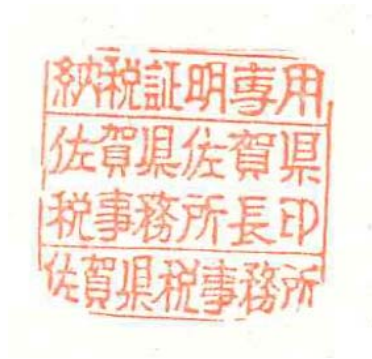 納税証明専用
佐賀県佐賀県
税事務所長印
佐賀県税事務所